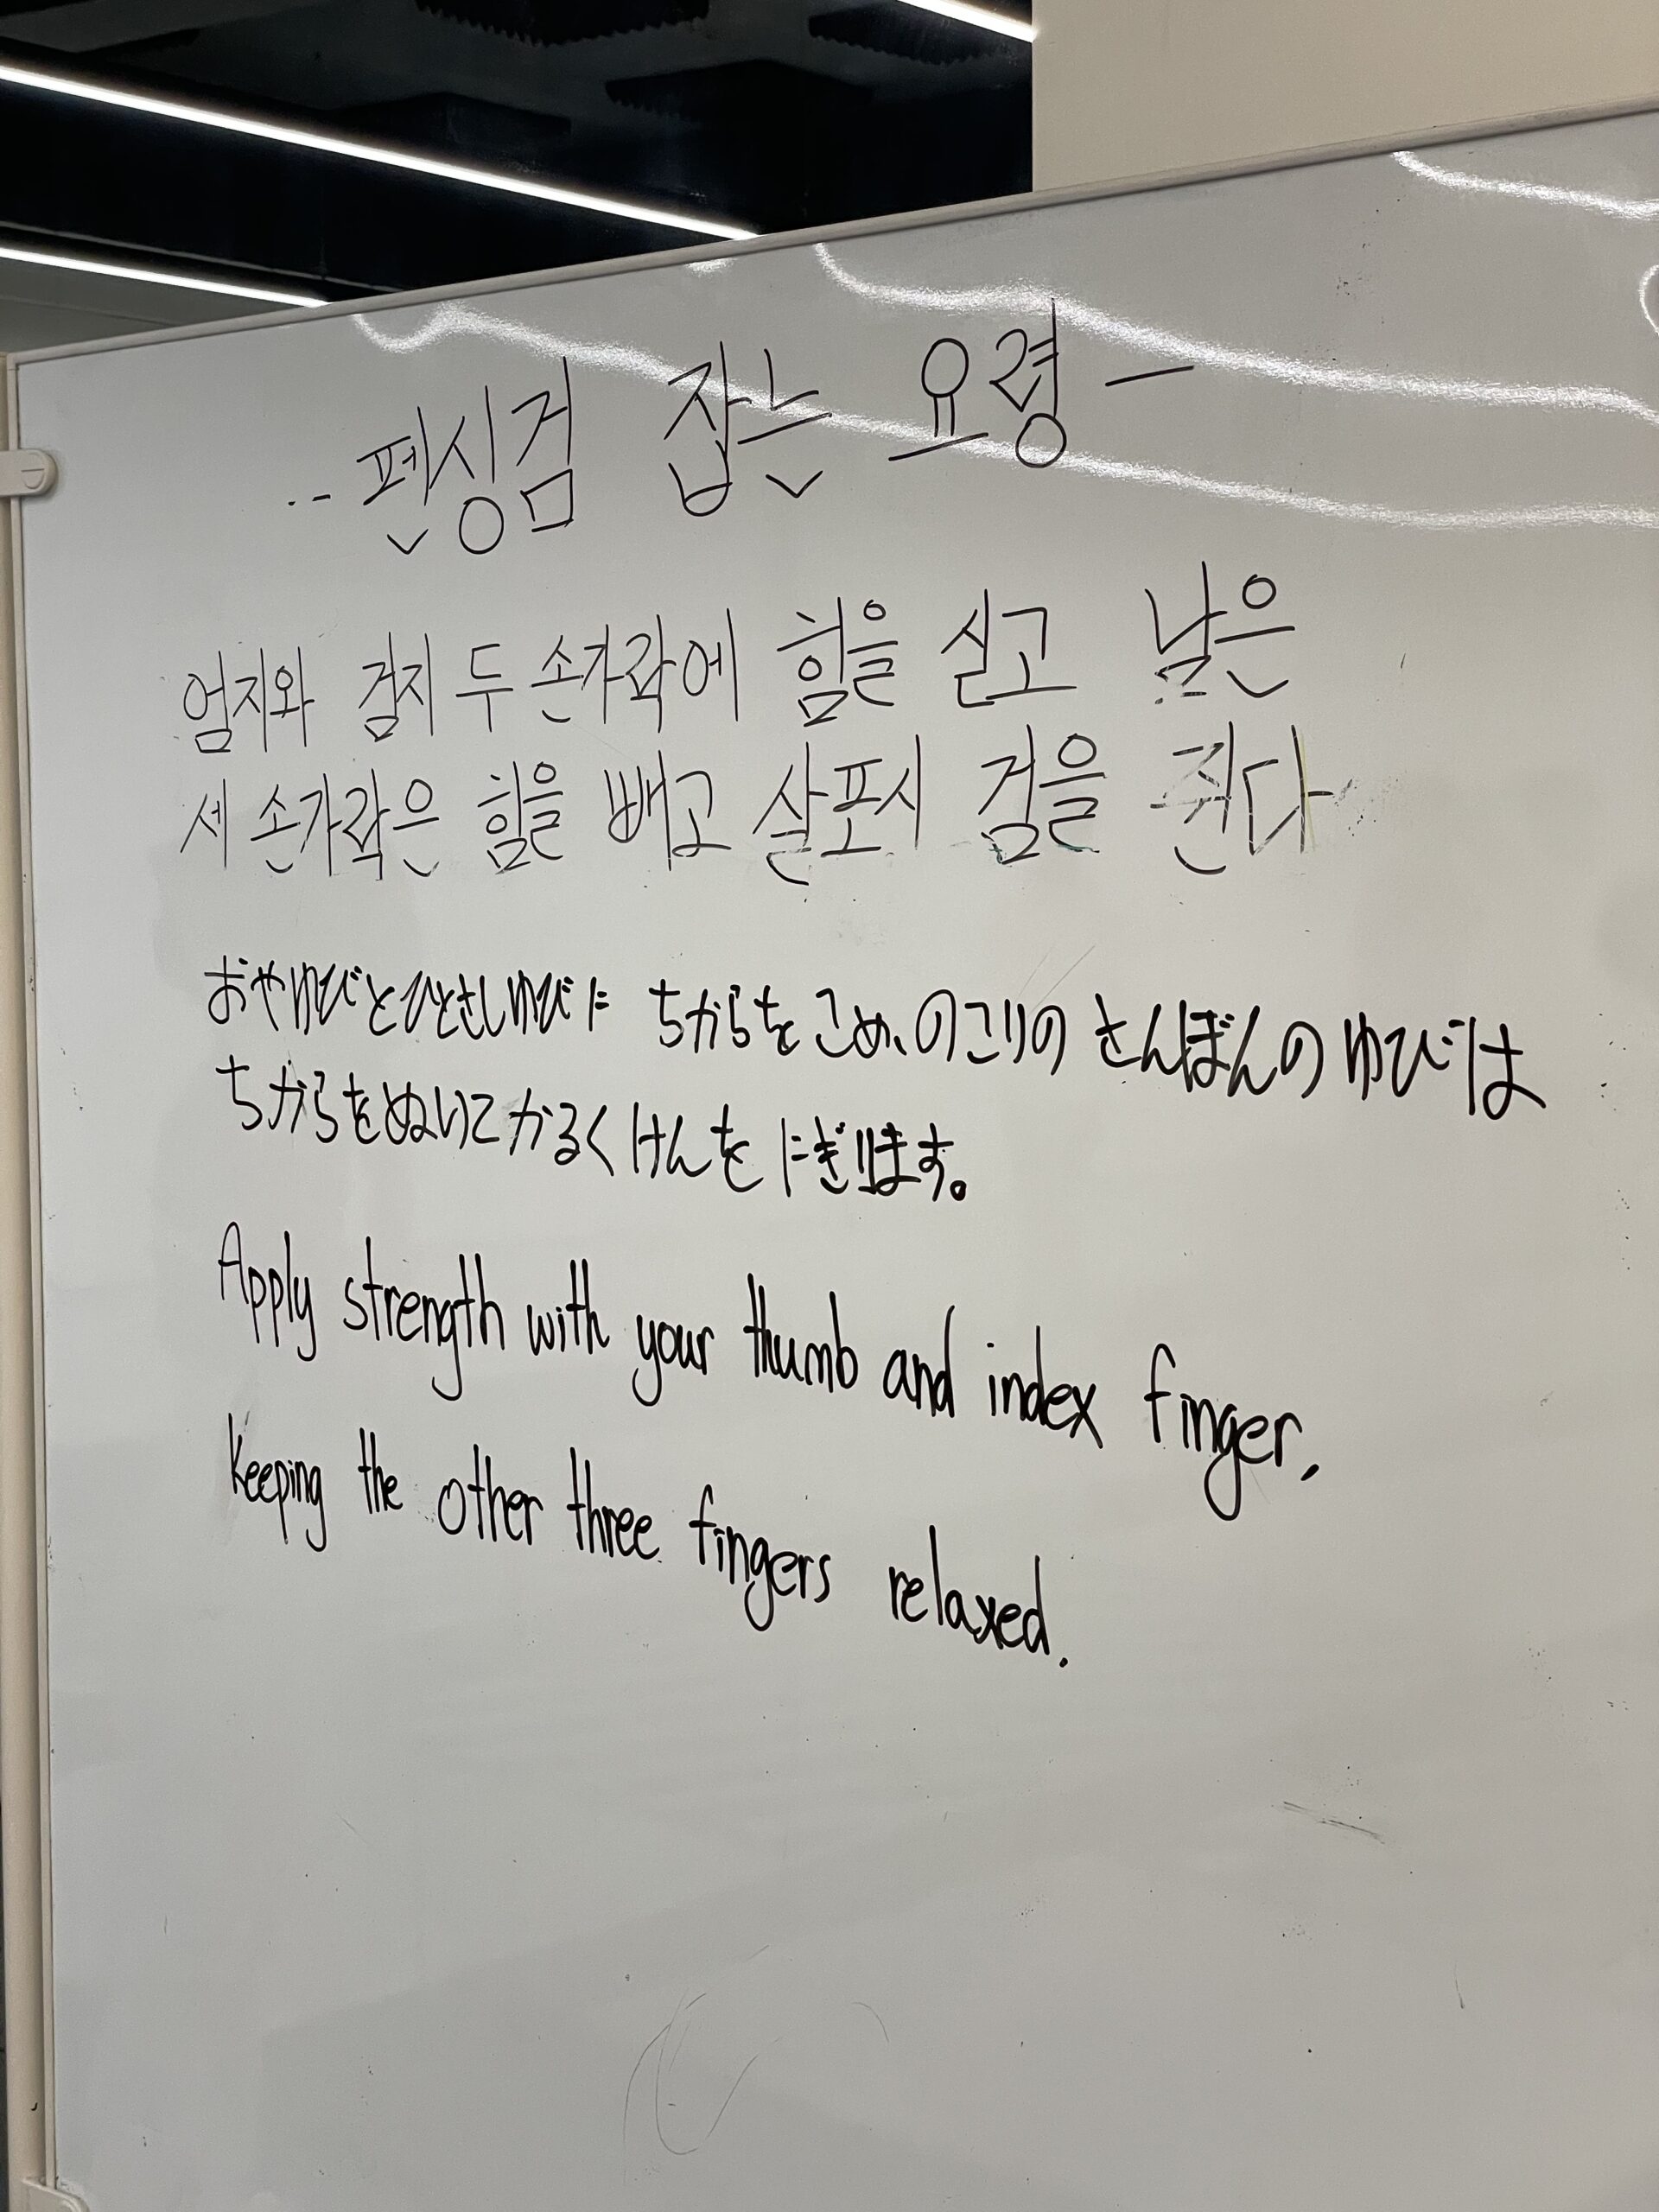 .. 펜싱검 잡는 요령 —
엄지와 검지 두 손가락에 힘을 싣고 남은
세 손가락은 힘을 빼고 살포시 검을 쥔다
おやゆびとひとさしゆびに ちからをこめ、のこりの さんぼんの ゆびは
ちからをぬいて かるく けんを にぎります。
Apply strength with your thumb and index finger,
keeping the other three fingers relaxed.